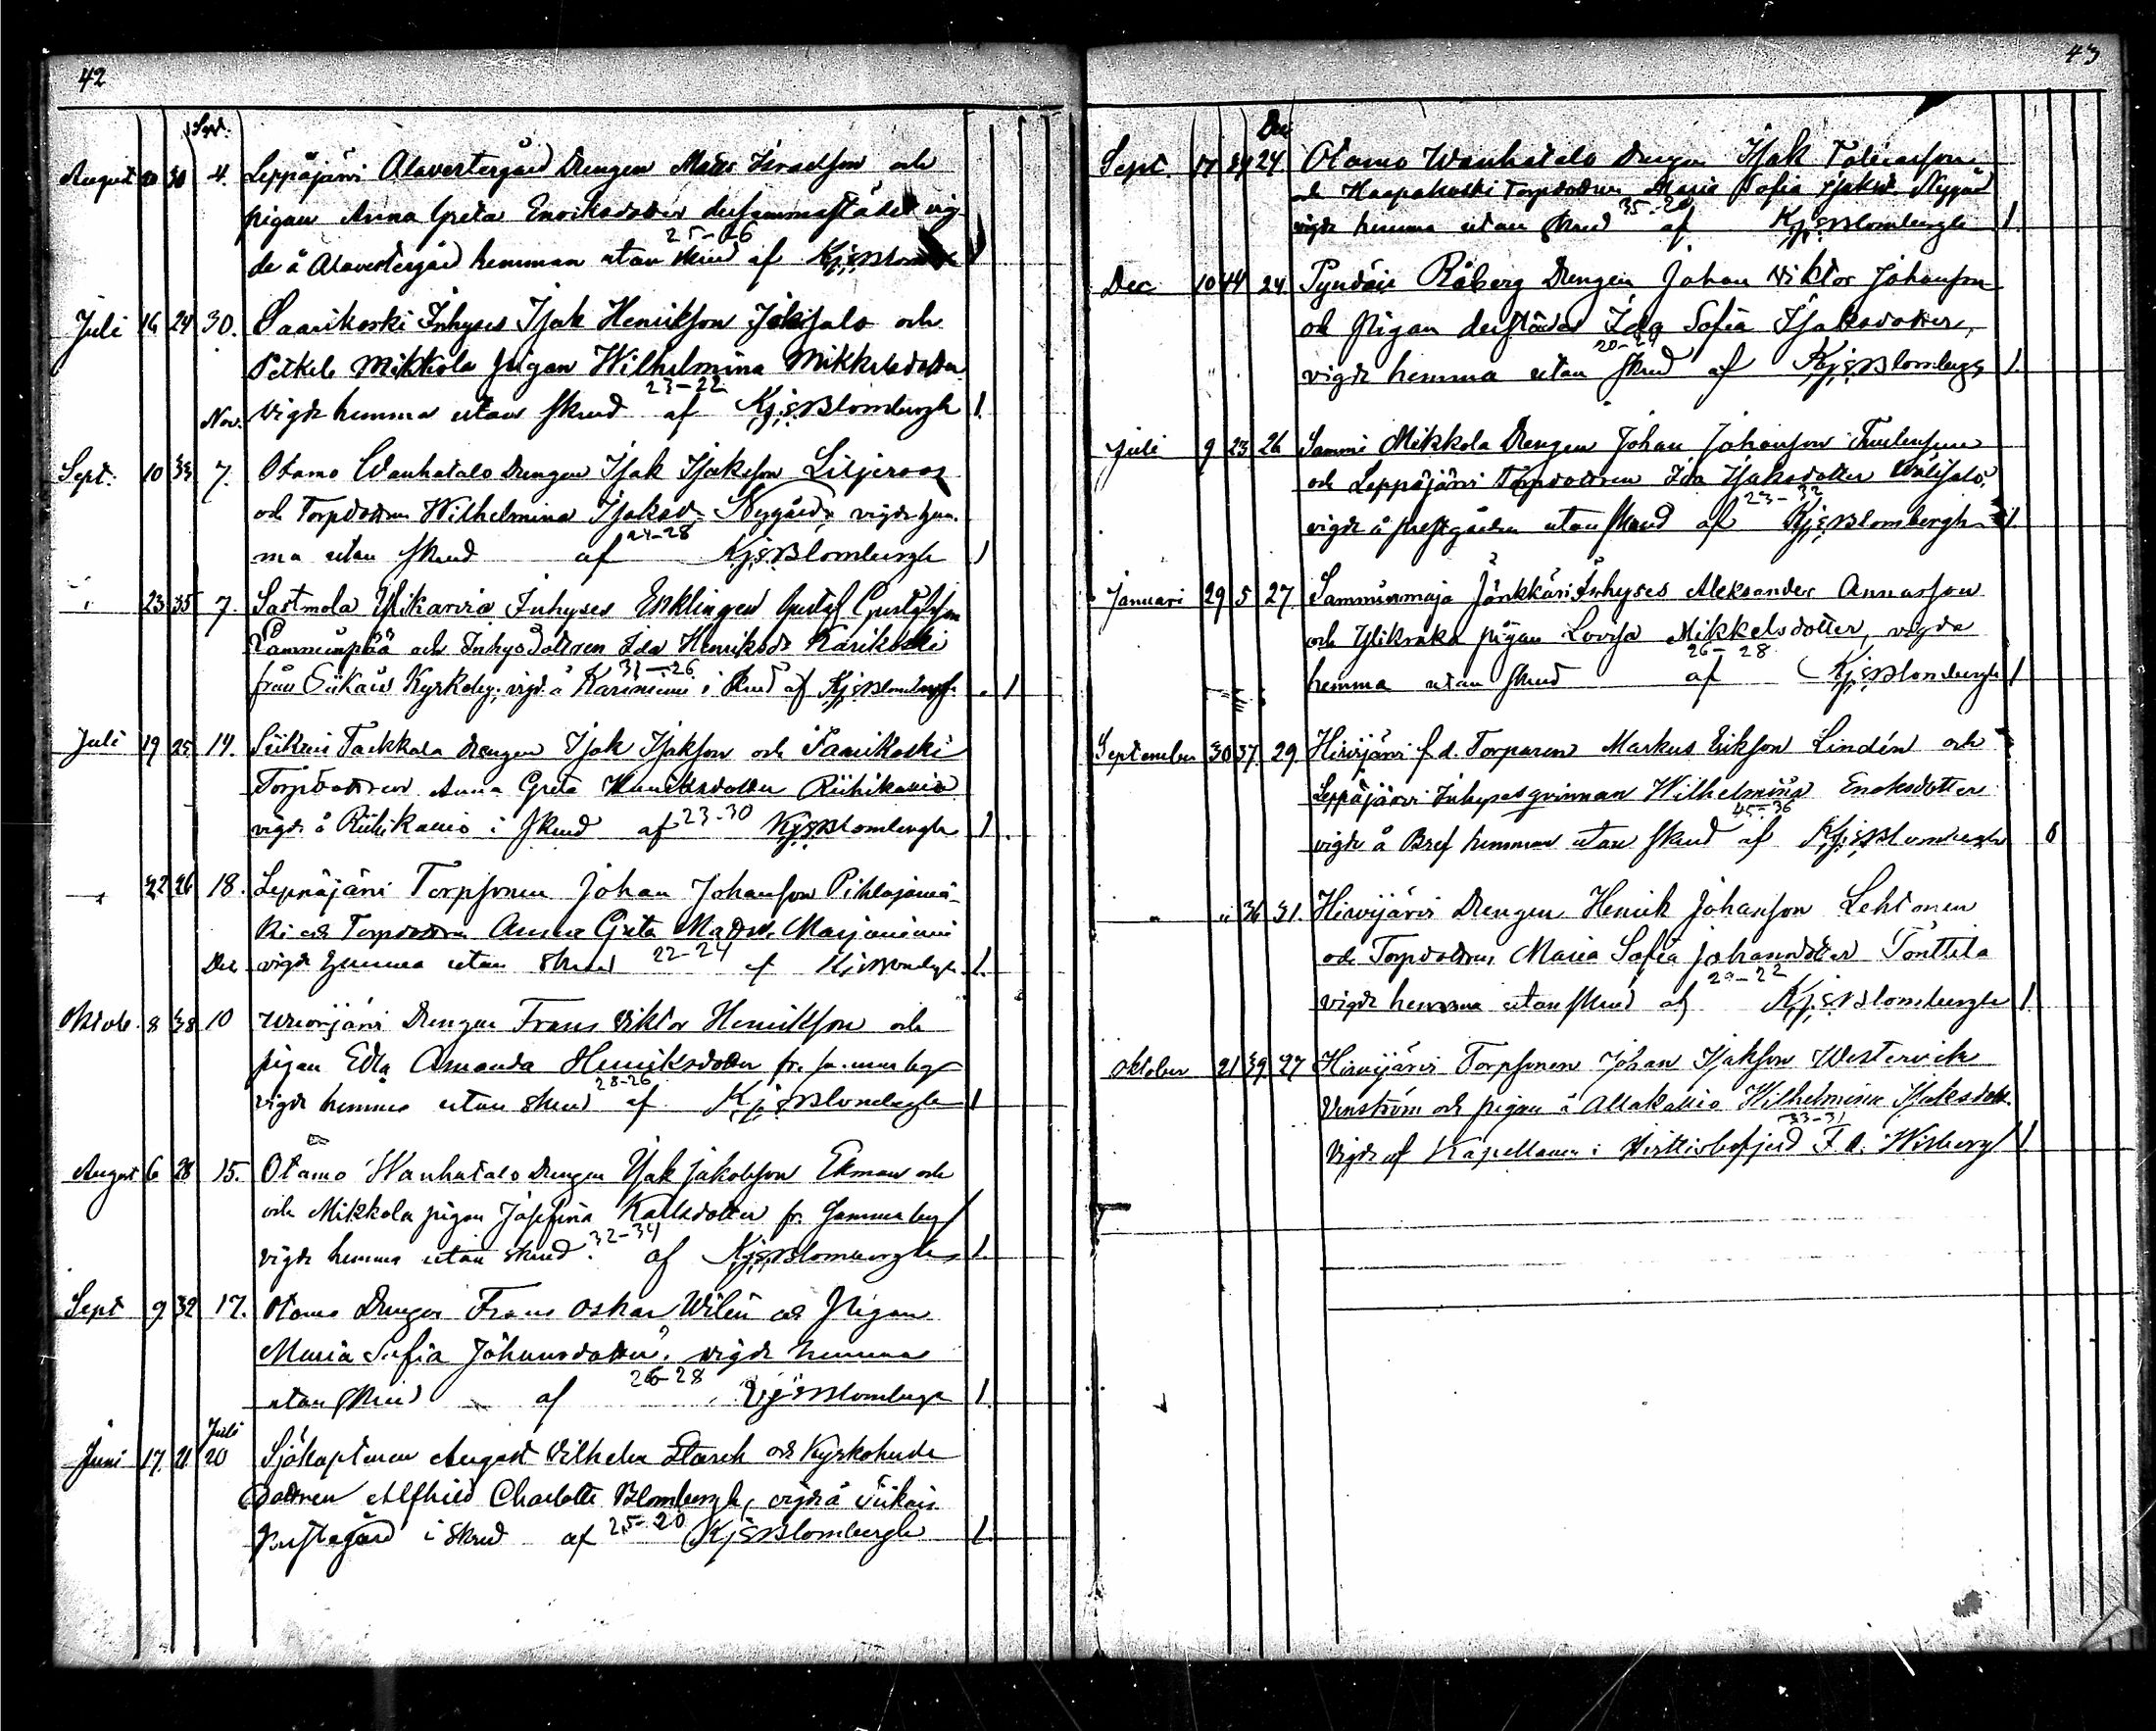 42
Augusti 20 30 4. Leppäjärvi Alavestergård Drengen Matts Israelsson och
pigan Anna Greta Enoksdotter dersammastädes vig-
de å Alavestergård hemman utan skrud af KjEBlombergh 1
25-26
Juli 16 24 30. Saarikoski Inhyses Isak Henriksson Jokisalo och
Petkele Mikkola pigan Wilhelmina Mikkelsdotter
23-22
Nov. vigde hemma utan skrud af KjEBlombergh 1.
Sept. 10 33 7. Otamo Wanhatalo Drengen Isak Isaksson Liljeroos
och Torpdottren Wilhelmina Isaksd. Nygård, vigde hem-
24-28
ma utan skrud af KjEBlombergh 1
23 35 7. Sastmola Ylikarvia Inhyses Enklingen Gustaf Gustafsson
Lamminpää och Inhysdottren Ida Henriksdr Karikoski
31-26
från Siikais Kyrkoby, vigd. å Karinniemi i skrud af KjEBlombergh. 1
Juli 19 25 14. Siikais Tackkala Drengen Isak Isaksson och Saarikoski
Torpdottren Anna Greta Henriksdotter Riihikallio
vigde å Riihikallio i skrud af 23-30 KjEBlombergh 1
22 26 18. Leppäjärvi Torpsonen Johan Johansson Pihlajamä-
ki och Torpdottren Anna Greta Mattsdr. Marjaniemi
Dec vigde hemma utan skrud 22-24 af KjEBlombergh. 1.
Oktob. 8 38 10 Drengen Frans Viktor Henriksson och
pigan Edla Amanda Henriksdotter fr. samma by
28-26
vigde hemma utan skrud af KjEBlombergh 1
August 6 28 15. Otamo Wanhatalo Drengen Isak Jakobsson Ekman och
och Mikkola pigan Josefina Karlsdotter fr. samma by
vigde hemma utan skrud. 32-34 af KjEBlombergh 1.
Sept 9 32 17. Otamo Drengen Frans Oskar Wilén och Pigan
Maria Sofia Johansdotter, vigde hemma
utan skrud af 26-28 KjEBlombergh 1.
Juli
Juni 17. 21 20 Sjökaptenen August Vilhelm Starck och Kyrkoherde
Dottren Alfhild Charlotta Blombergh, vigde å Siikais
Prestegård i skrud af 25-20 KjEBlombergh 1.
43
Dec
Sept. 17 34 24. Otamo Wanhatalo Drengen Isak
och Haapakoski Torpdottren Maria Sofia Isaksd. Nygård
35-20
vigde hemma utan skrud af KjEBlombergh 1.
Dec 10 44 24. Pyndäis Råberg Drengen Johan Viktor Johansson
och Pigan derstädes Ida Sofia Isaksdotter,
20-24
vigde hemma utan skrud af KjEBlombergh 1.
Juli 9 23 26 Sammi Mikkola Drengen Johan Johansson
och Leppäjärvi Torpdottren Ida Isaksdotter Välisalo,
23-32
vigde å prestgården utan skrud af KjEBlombergh 1.
Januari 29 5 27 Samminmaja Jänkkäri Inhyses Aleksander Annasson
och Ylikraka pigan Lovisa Mikkelsdotter, vigde
26-28
hemma utan skrud af KjEBlombergh 1
September 30 37 29. Hirvijärvi f.d. Torparen Markus Eriksson Lindén och
Leppäjärvi Inhysesqvinnan Wilhelmina Enoksdotter
45-36
vigde å Bref hemman utan skrud af KjEBlombergh 6
" " 36 31. Hirvijärvi Drengen Henrik Johansson Lehtonen
och Torpdottren Maria Sofia Johansdotter Tonttila
20-22
vigde hemma utan skrud af KjEBlombergh 1.
Oktober 21 39 27 Hirvijärvi Torpsonen Johan Isaksson Westervik
Venström och pigan å Alakallio Wilhelmina Isaksdott.
33-31
Vigde af Kapellanen i F. A. Wisberg 1.